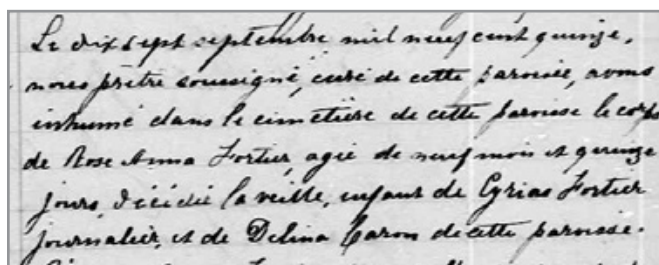 Le dix sept septembre mil neuf cent quinze,
nous prêtre soussigné, curé de cette paroisse, avons
inhumé dans le cimetière de cette paroisse le corps
de Rose Anna Fortier, agée de neuf mois et quinze
jours, décédée la veille, enfant de Cyrias Fortier
journalier, et de Delina Caron de cette paroisse.